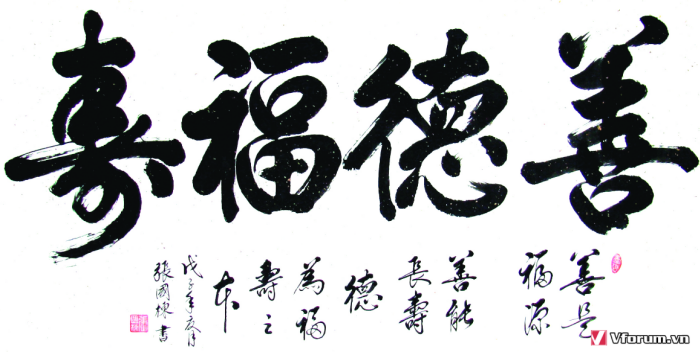 善德福寿
善是
福源
善能
長壽
德
為福
壽之
本
戊子年夏月
張國棟書
Vforum.vn